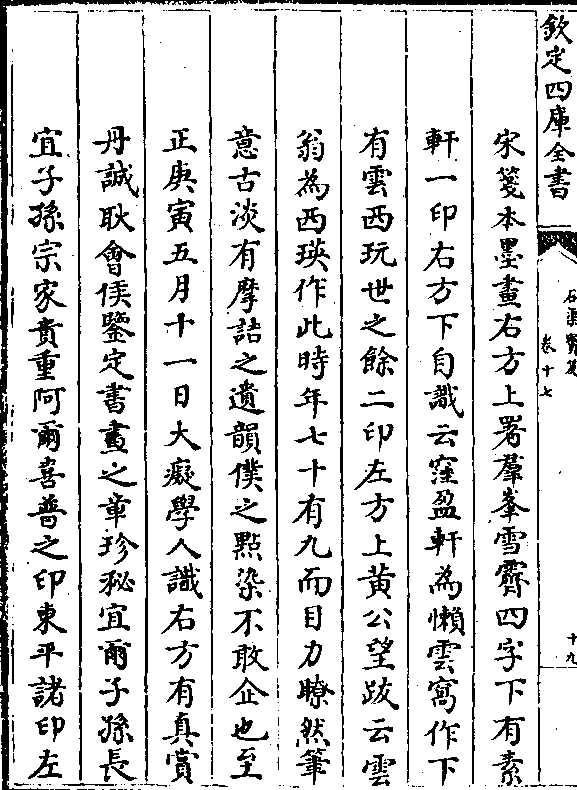 欽定四庫全書
石渠寶笈
卷十七
十九
宋箋本墨畫右方上署羣峯雪霽四字下有素
軒一印右方下自識云窪盈軒為懶雲窩作下
有雲西玩世之餘二印左方上黄公望跋云雲
翁為西瑛作此時年七十有九而目力瞭然筆
意古淡有摩詰之遺韻僕之點染不敢企也至
正庚寅五月十一日大癡學人識右方有真賞
丹誠耿會侯鑒定書畫之章珍秘宜爾子孫長
宜子孫宗家貴重阿爾喜普之印東平諸印左